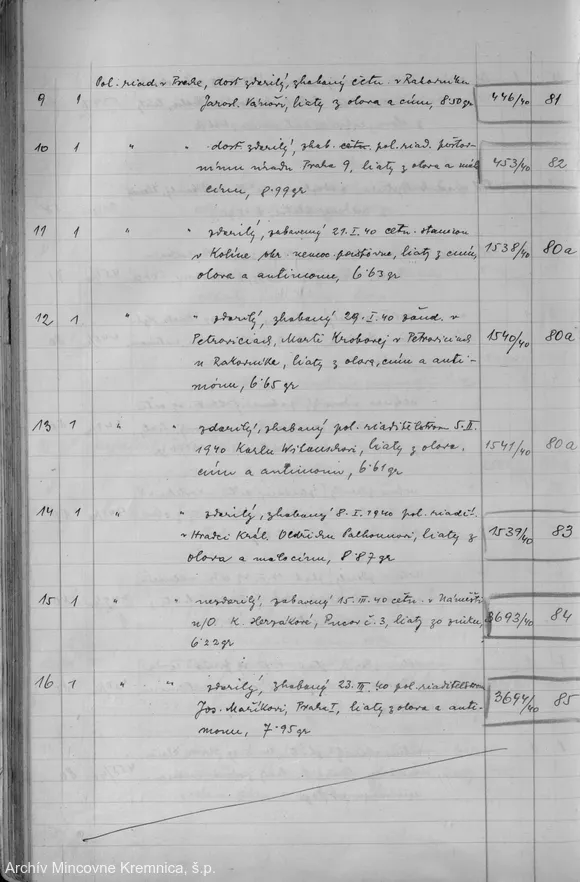 Pol. riad. v Prahe, dosť zdarilý, zhabaný četn. v Rakovníku
9 1 Jarosl. Vánovi, liaty z olova a cínu, 8·50 gr 446/40 81
10 1 " " dosť zdarilý, zhab. četn. pol. riad. poštov-
nímu úradu Praha 9, liaty z olova a málo 453/40 82
cínu, 8·99 gr
11 1 " " zdarilý, zabavený 21.I.40 četn. stanicou
v Kolíne, okr. nemoc. poisťovne, liaty z cínu, 1538/40 80a
olova a antimonu, 6·63 gr
12 1 " " zdarilý, zhabaný 29.I.40 v
Petroviciach, Marti Krobovej v Petroviciach 1540/40 80a
u Rakovníka, liaty z olova, cínu a anti-
mónu, 6·65 gr
13 1 " " zdarilý, zhabaný pol. riaditeľstvom 5.II.
1940 Karlu liaty z olova, 1541/40 80a
cínu a antimonu, 6·61 gr
14 1 " " zdarilý, zhabaný 8.I.1940 pol. riadit.
v Hradci Král. Oldřichu liaty z 1539/40 83
olova a málo cínu, 8·87 gr
15 1 " " nezdarilý, zabavený 15.III.40 četn. v Náměšti
n/O. K. Herzákové, č. 3, liaty zo zinku, 3693/40 84
6·22 gr
16 1 " " zdarilý, zhabaný 23.III.40 pol. riaditeľstvom
Jos. Maříkovi, Praha I, liaty z olova a anti- 3694/40 85
monu, 7·95 gr
Archív Mincovne Kremnica, š.p.